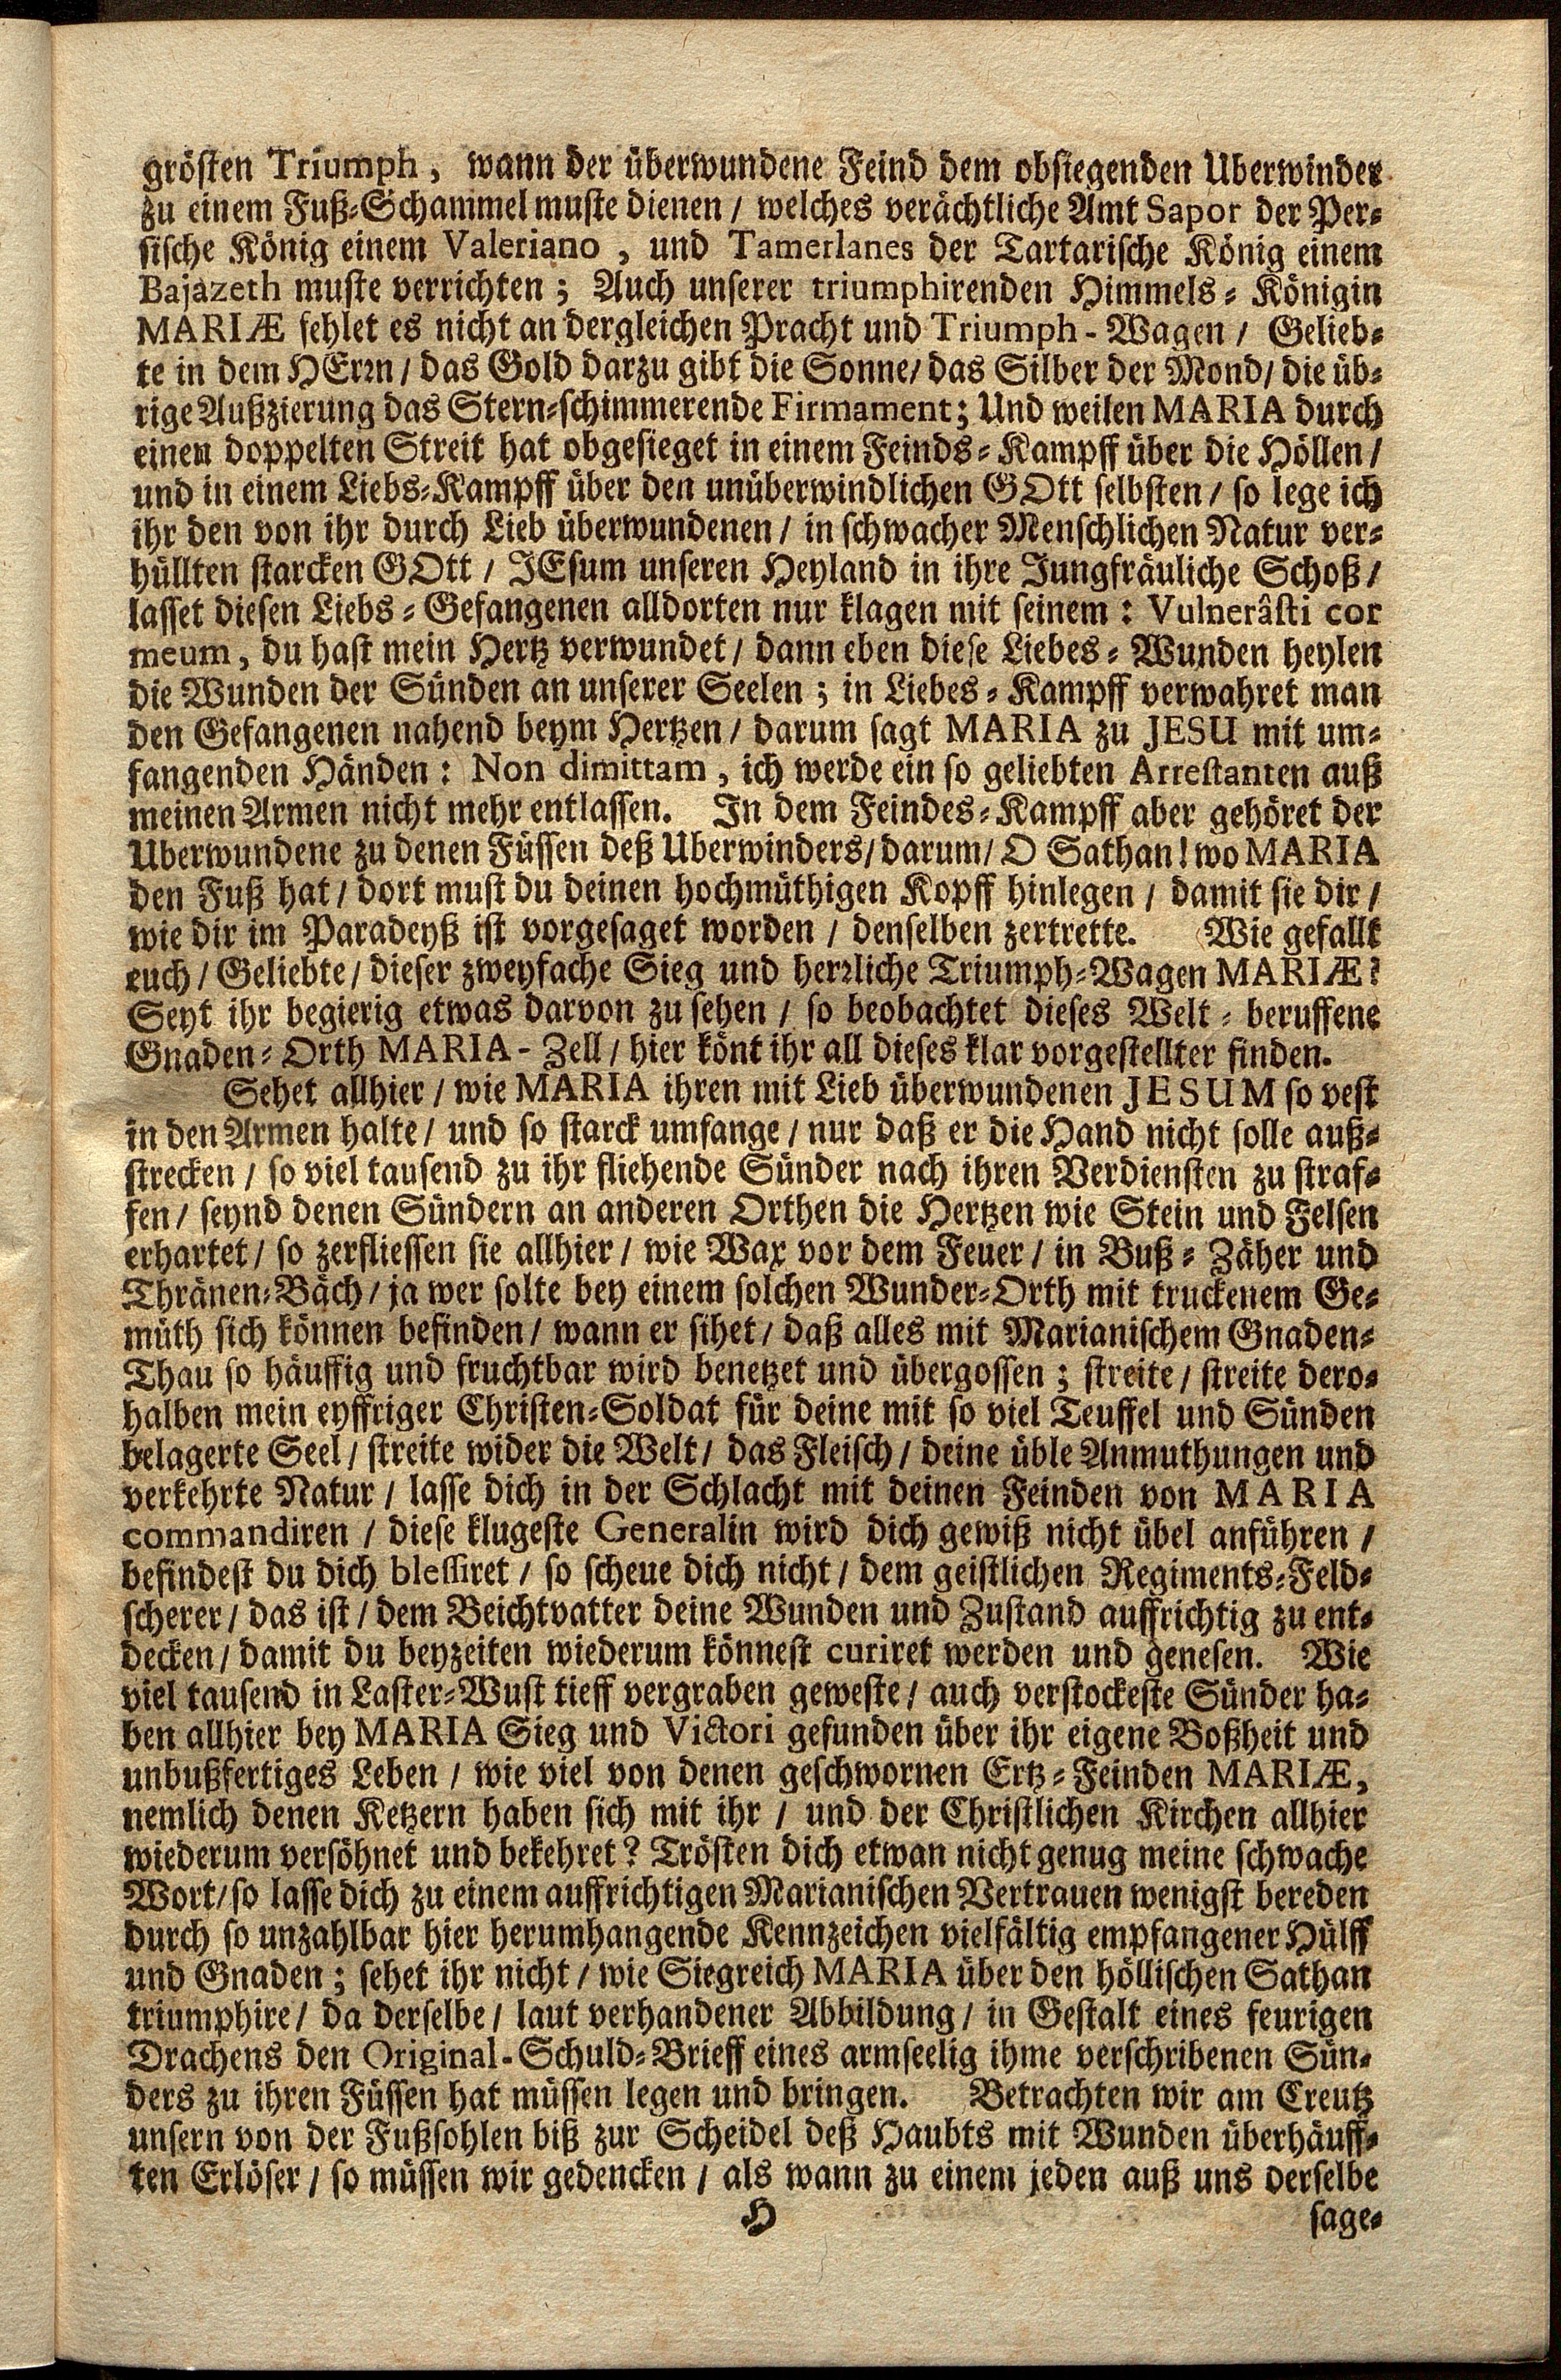 grösten Triumph, wann der überwundene Feind dem obsiegenden Uberwinder
zu einem Fuß-Schammel muste dienen / welches verächtliche Amt Sapor der Per-
sische König einem Valeriano, und Tamerlanes der Tartarische König einem
Bajazeth muste verrichten; Auch unserer triumphirenden Himmels-Königin
MARIÆ fehlet es nicht an dergleichen Pracht und Triumph-Wagen / Gelieb-
te in dem HErrn / das Gold darzu gibt die Sonne / das Silber der Mond / die üb-
rige Außzierung das Stern-schimmerende Firmament; Und weilen MARIA durch
einen doppelten Streit hat obgesieget in einem Feinds-Kampff über die Höllen /
und in einem Liebs-Kampff über den unüberwindlichen GOtt selbsten / so lege ich
ihr den von ihr durch Lieb überwundenen / in schwacher Menschlichen Natur ver-
hüllten starcken GOtt / JEsum unseren Heyland in ihre Jungfräuliche Schoß /
lasset diesen Liebs-Gefangenen alldorten nur klagen mit seinem: Vulnerâsti cor
meum, du hast mein Hertz verwundet / dann eben diese Liebes-Wunden heylen
die Wunden der Sünden an unserer Seelen; in Liebes-Kampff verwahret man
den Gefangenen nahend beym Hertzen / darum sagt MARIA zu JESU mit um-
fangenden Händen: Non dimittam, ich werde ein so geliebten Arrestanten auß
meinen Armen nicht mehr entlassen. In dem Feindes-Kampff aber gehöret der
Uberwundene zu denen Füssen deß Uberwinders / darum / O Sathan! wo MARIA
den Fuß hat / dort must du deinen hochmüthigen Kopff hinlegen / damit sie dir /
wie dir im Paradeyß ist vorgesaget worden / denselben zertrette. Wie gefallt
euch / Geliebte / dieser zweyfache Sieg und herrliche Triumph-Wagen MARIÆ?
Seyt ihr begierig etwas darvon zu sehen / so beobachtet dieses Welt-beruffene
Gnaden-Orth MARIA-Zell / hier könt ihr all dieses klar vorgestellter finden.
Sehet allhier / wie MARIA ihren mit Lieb überwundenen JESUM so vest
in den Armen halte / und so starck umfange / nur daß er die Hand nicht solle auß-
strecken / so viel tausend zu ihr fliehende Sünder nach ihren Verdiensten zu straf-
fen / seynd denen Sündern an anderen Orthen die Hertzen wie Stein und Felsen
erhartet / so zerfliessen sie allhier / wie Wax vor dem Feuer / in Buß-Zäher und
Thränen-Bäch / ja wer solte bey einem solchen Wunder-Orth mit truckenem Ge-
müth sich können befinden / wann er sihet / daß alles mit Marianischem Gnaden-
Thau so häuffig und fruchtbar wird benetzet und übergossen; streite / streite dero-
halben mein eyffriger Christen-Soldat für deine mit so viel Teuffel und Sünden
belagerte Seel / streite wider die Welt / das Fleisch / deine üble Anmuthungen und
verkehrte Natur / lasse dich in der Schlacht mit deinen Feinden von MARIA
commandiren / diese klugeste Generalin wird dich gewiß nicht übel anführen /
befindest du dich blessiret / so scheue dich nicht / dem geistlichen Regiments-Feld-
scherer / das ist / dem Beichtvatter deine Wunden und Zustand auffrichtig zu ent-
decken / damit du beyzeiten wiederum könnest curiret werden und genesen. Wie
viel tausend in Laster-Wust tieff vergraben geweste / auch verstockeste Sünder ha-
ben allhier bey MARIA Sieg und Victori gefunden über ihr eigene Boßheit und
unbußfertiges Leben / wie viel von denen geschwornen Ertz-Feinden MARIÆ,
nemlich denen Ketzern haben sich mit ihr / und der Christlichen Kirchen allhier
wiederum versöhnet und bekehret? Trösten dich etwan nicht genug meine schwache
Wort / so lasse dich zu einem auffrichtigen Marianischen Vertrauen wenigst bereden
durch so unzahlbar hier herumhangende Kennzeichen vielfältig empfangener Hülff
und Gnaden; sehet ihr nicht / wie Siegreich MARIA über den höllischen Sathan
triumphire / da derselbe / laut verhandener Abbildung / in Gestalt eines feurigen
Drachens den Original-Schuld-Brieff eines armseelig ihme verschribenen Sün-
ders zu ihren Füssen hat müssen legen und bringen. Betrachten wir am Creutz
unsern von der Fußsohlen biß zur Scheidel deß Haubts mit Wunden überhäuff-
ten Erlöser / so müssen wir gedencken / als wann zu einem jeden auß uns derselbe
H sage-